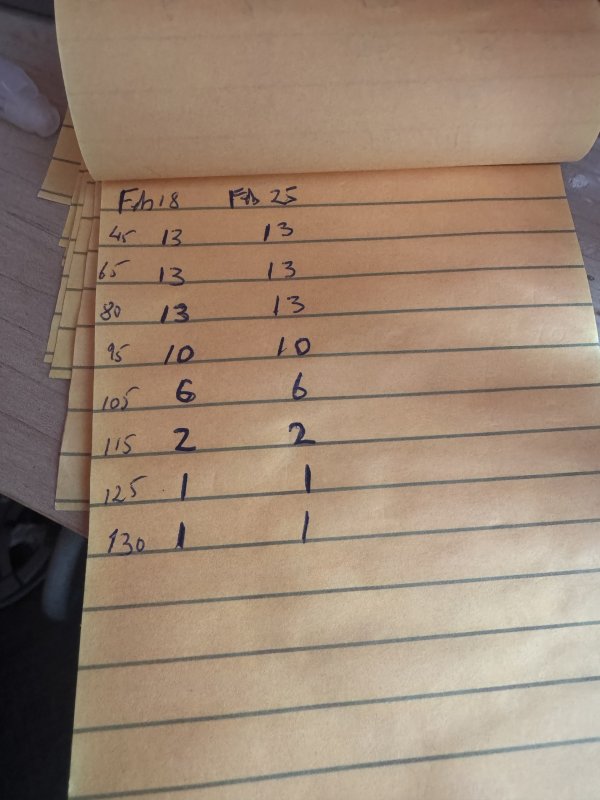 Feb 18 Feb 25
45 13 13
65 13 13
80 13 13
95 10 10
105 6 6
115 2 2
125 1 1
130 1 1